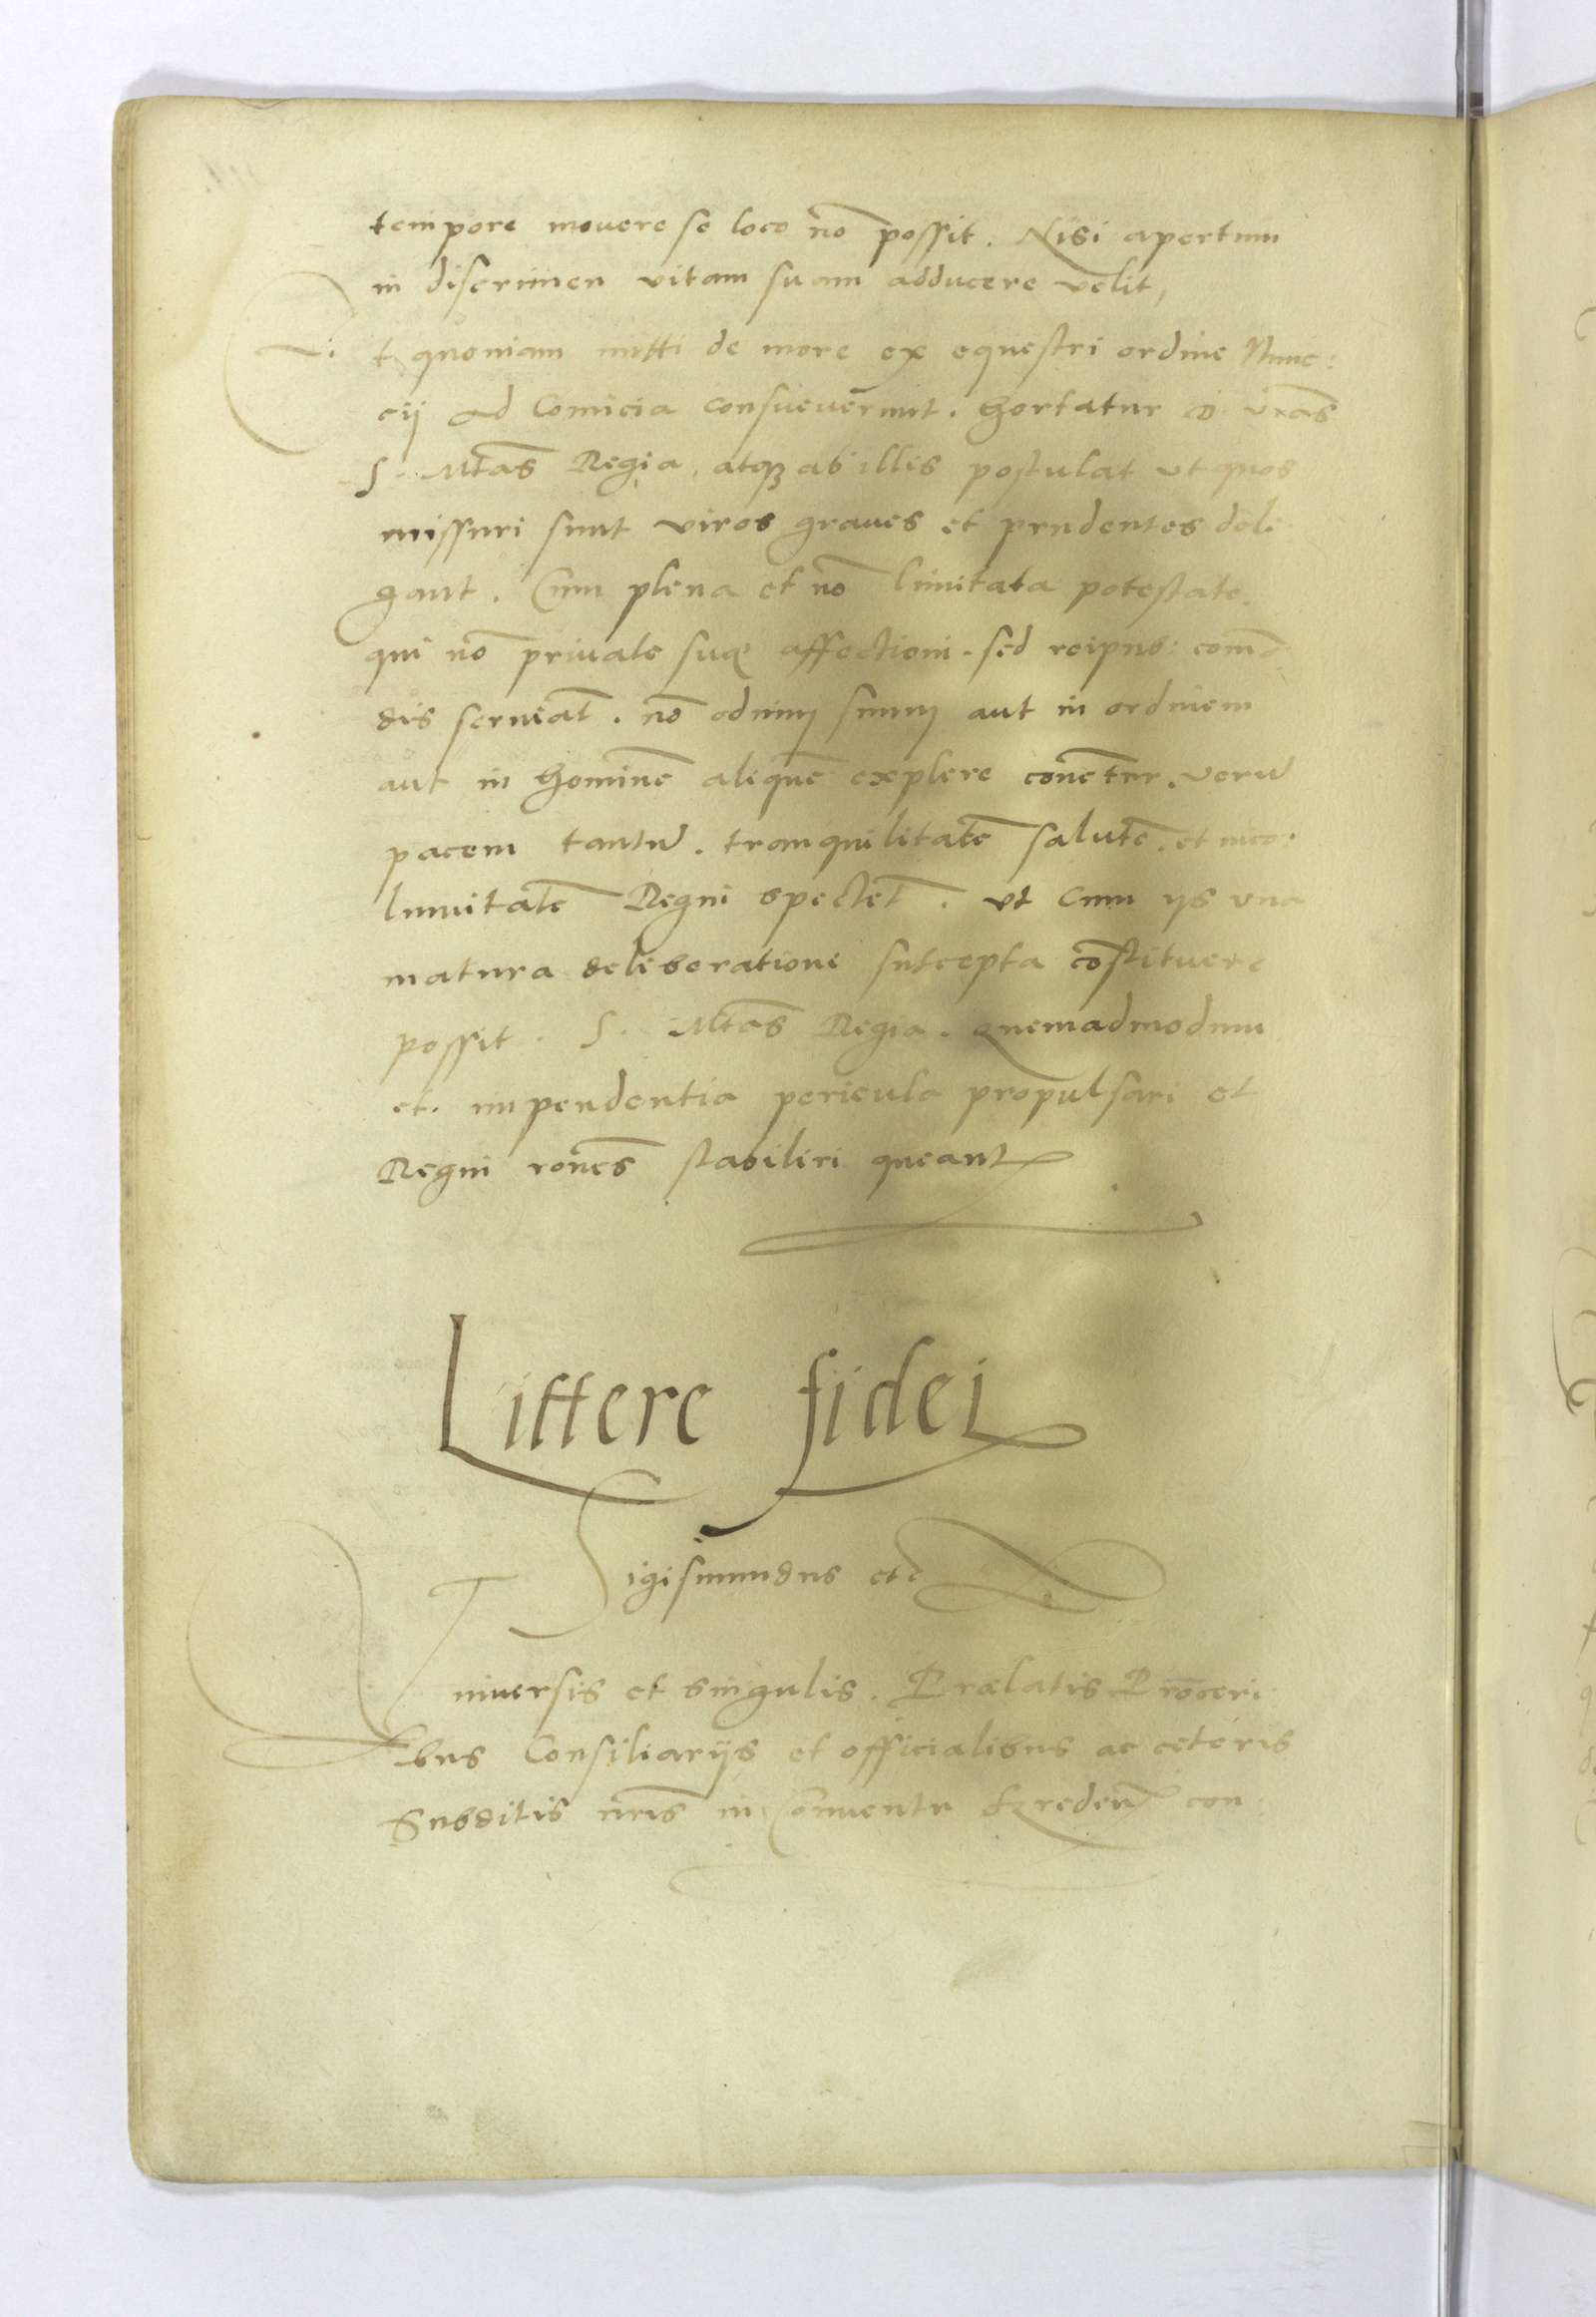 tempore mouere se loco nō possit. Nisi apertum
in discrimen vitam suam adducere velit,
Et quoniam mitti de more ex equestri ordine Nunc:
cij ad Comicia consueuerunt. hortatur D. vr̄as
S. Mtās Regia. atq3 ab illis postulat ut quos
missuri sunt viros graues et prudentes dele
gant. Cum plena et nō limitata potestate.
qui nō priuate suę affectioni. sed reipub: com̄o
dis seruiāt. nō odium suum aut in ordinem
aut in hominē aliquē explere conētur. verū
pacem tantū. tranquilitatē salutē. et inco:
lumitatē Regni spectēt. ut cum ijs una
matura deliberatione suscepta cōstituere
possit. S. Mtās Regia. quemadmodum
et. impendentia pericula propulsari et
Regni rōnes stabiliri queant
Littere fidei
Sigismundus etc
Vniuersis et singulis. Prælatis Proceri
bus Consiliarijs et officialibus ac ceteris
Subditis nr̄is in Conuentu Sredeń con: